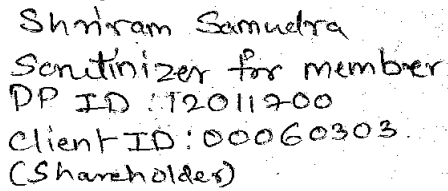 Shriram Samudra
Scrutinizer for member
DP ID : 12011200
Client ID : 00060303.
(Shareholder)